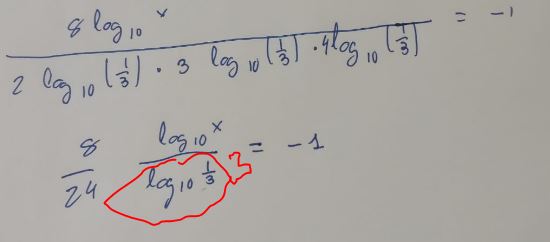 8 log₁₀ x / 2 log₁₀ (1/3) · 3 log₁₀ (1/3) · 4 log₁₀ (1/3) = -1
8/24 log₁₀ x / log₁₀ 1/3 3 = -1